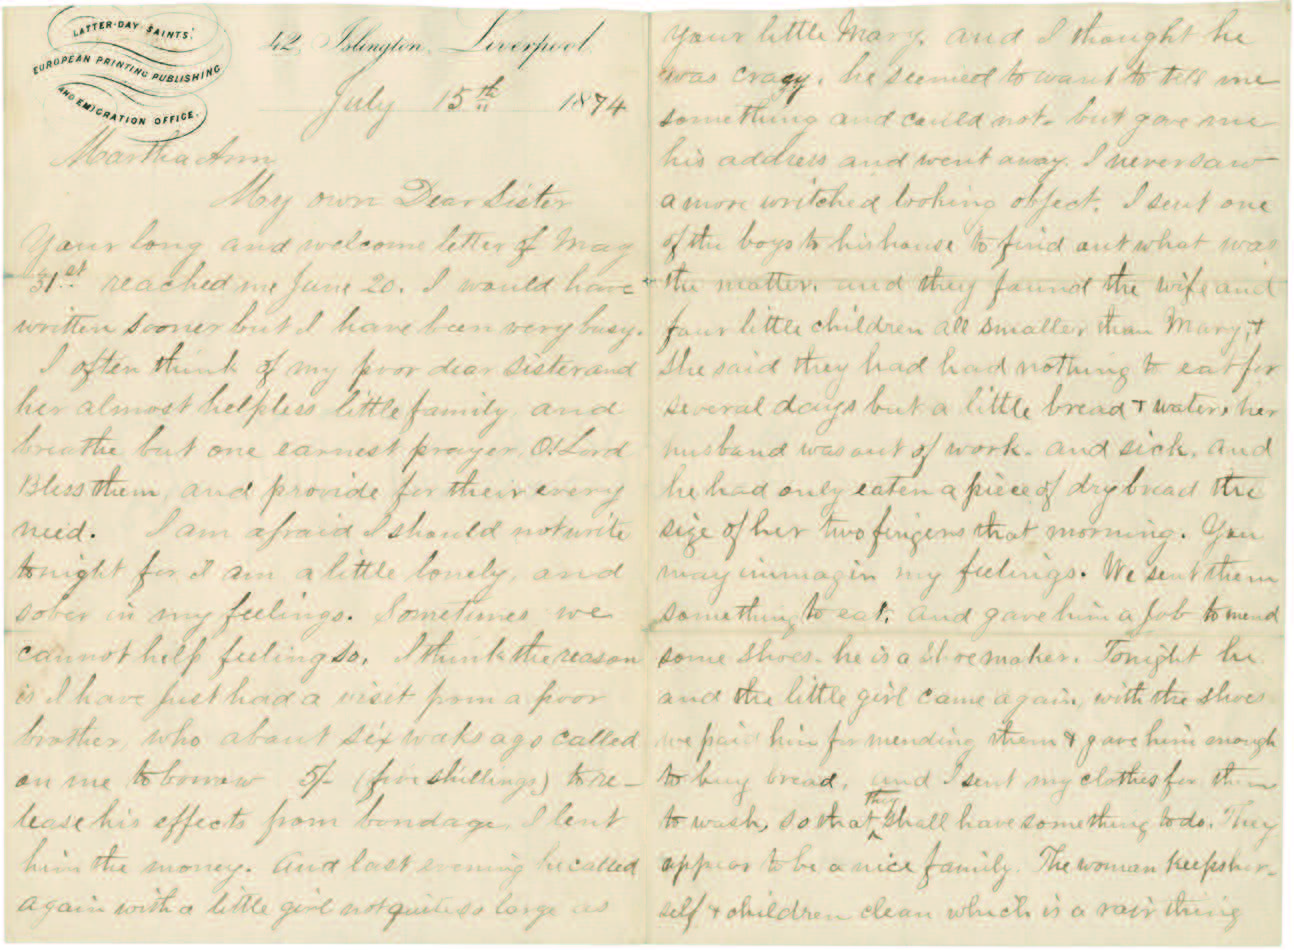 LATTER-DAY SAINTS'
EUROPEAN PRINTING PUBLISHING
AND EMIGRATION OFFICE.
42, Islington, Liverpool
July 15th 1874
Martha Ann
My own Dear Sister
Your long and welcome letter of May
31st reached me June 20. I would have
written sooner but I have been very busy.
I often think of my poor dear sister and
her almost helpless little family, and
breathe but one earnest prayer, O! Lord
Bless them, and provide for their every
need. I am afraid I should not write
tonight for I am a little lonely, and
sober in my feelings. Sometimes we
cannot help feeling so. I think the reason
is I have just had a visit from a poor
brother, who about six weaks ago called
on me to borrow 5/- (five shillings) to re-
lease his effects from bondage, I lent
him the money. And last evening he called
again with a little girl not quite so large as
your little Mary. and I thought he
was crazy. he seemed to want to tell me
something and could not. but gave me
his address and went away. I never saw
a more writched looking object. I sent one
of the boys to his house to find out what was
the matter. and they found the wife and
four little children all smaller than Mary, &
she said they had had nothing to eat for
several days but a little bread & water, her
husband was out of work. and sick. and
he had only eaten a piece of dry bread the
size of her two fingers that morning. You
may immagin my feelings. We sent them
something to eat. and gave him a job to mend
some shoes. he is a shoemaker. Tonight he
and the little girl came again, with the shoes
we paid him for mending them & gave him enough
to buy bread. and I sent my clothes for them
to wash, so that they shall have something to do. They
appear to be a nice family. The woman keeps her-
self & children clean which is a rair thing